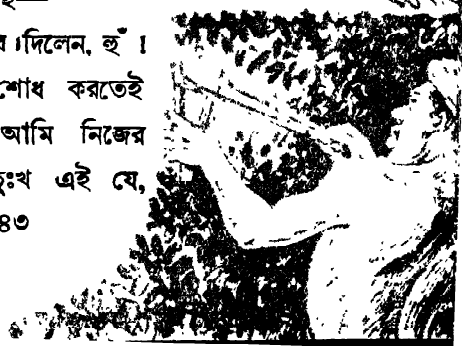 দিলেন, হুঁ !
শোধ করতেই
আমি নিজের
দুঃখ এই যে,
৪৩